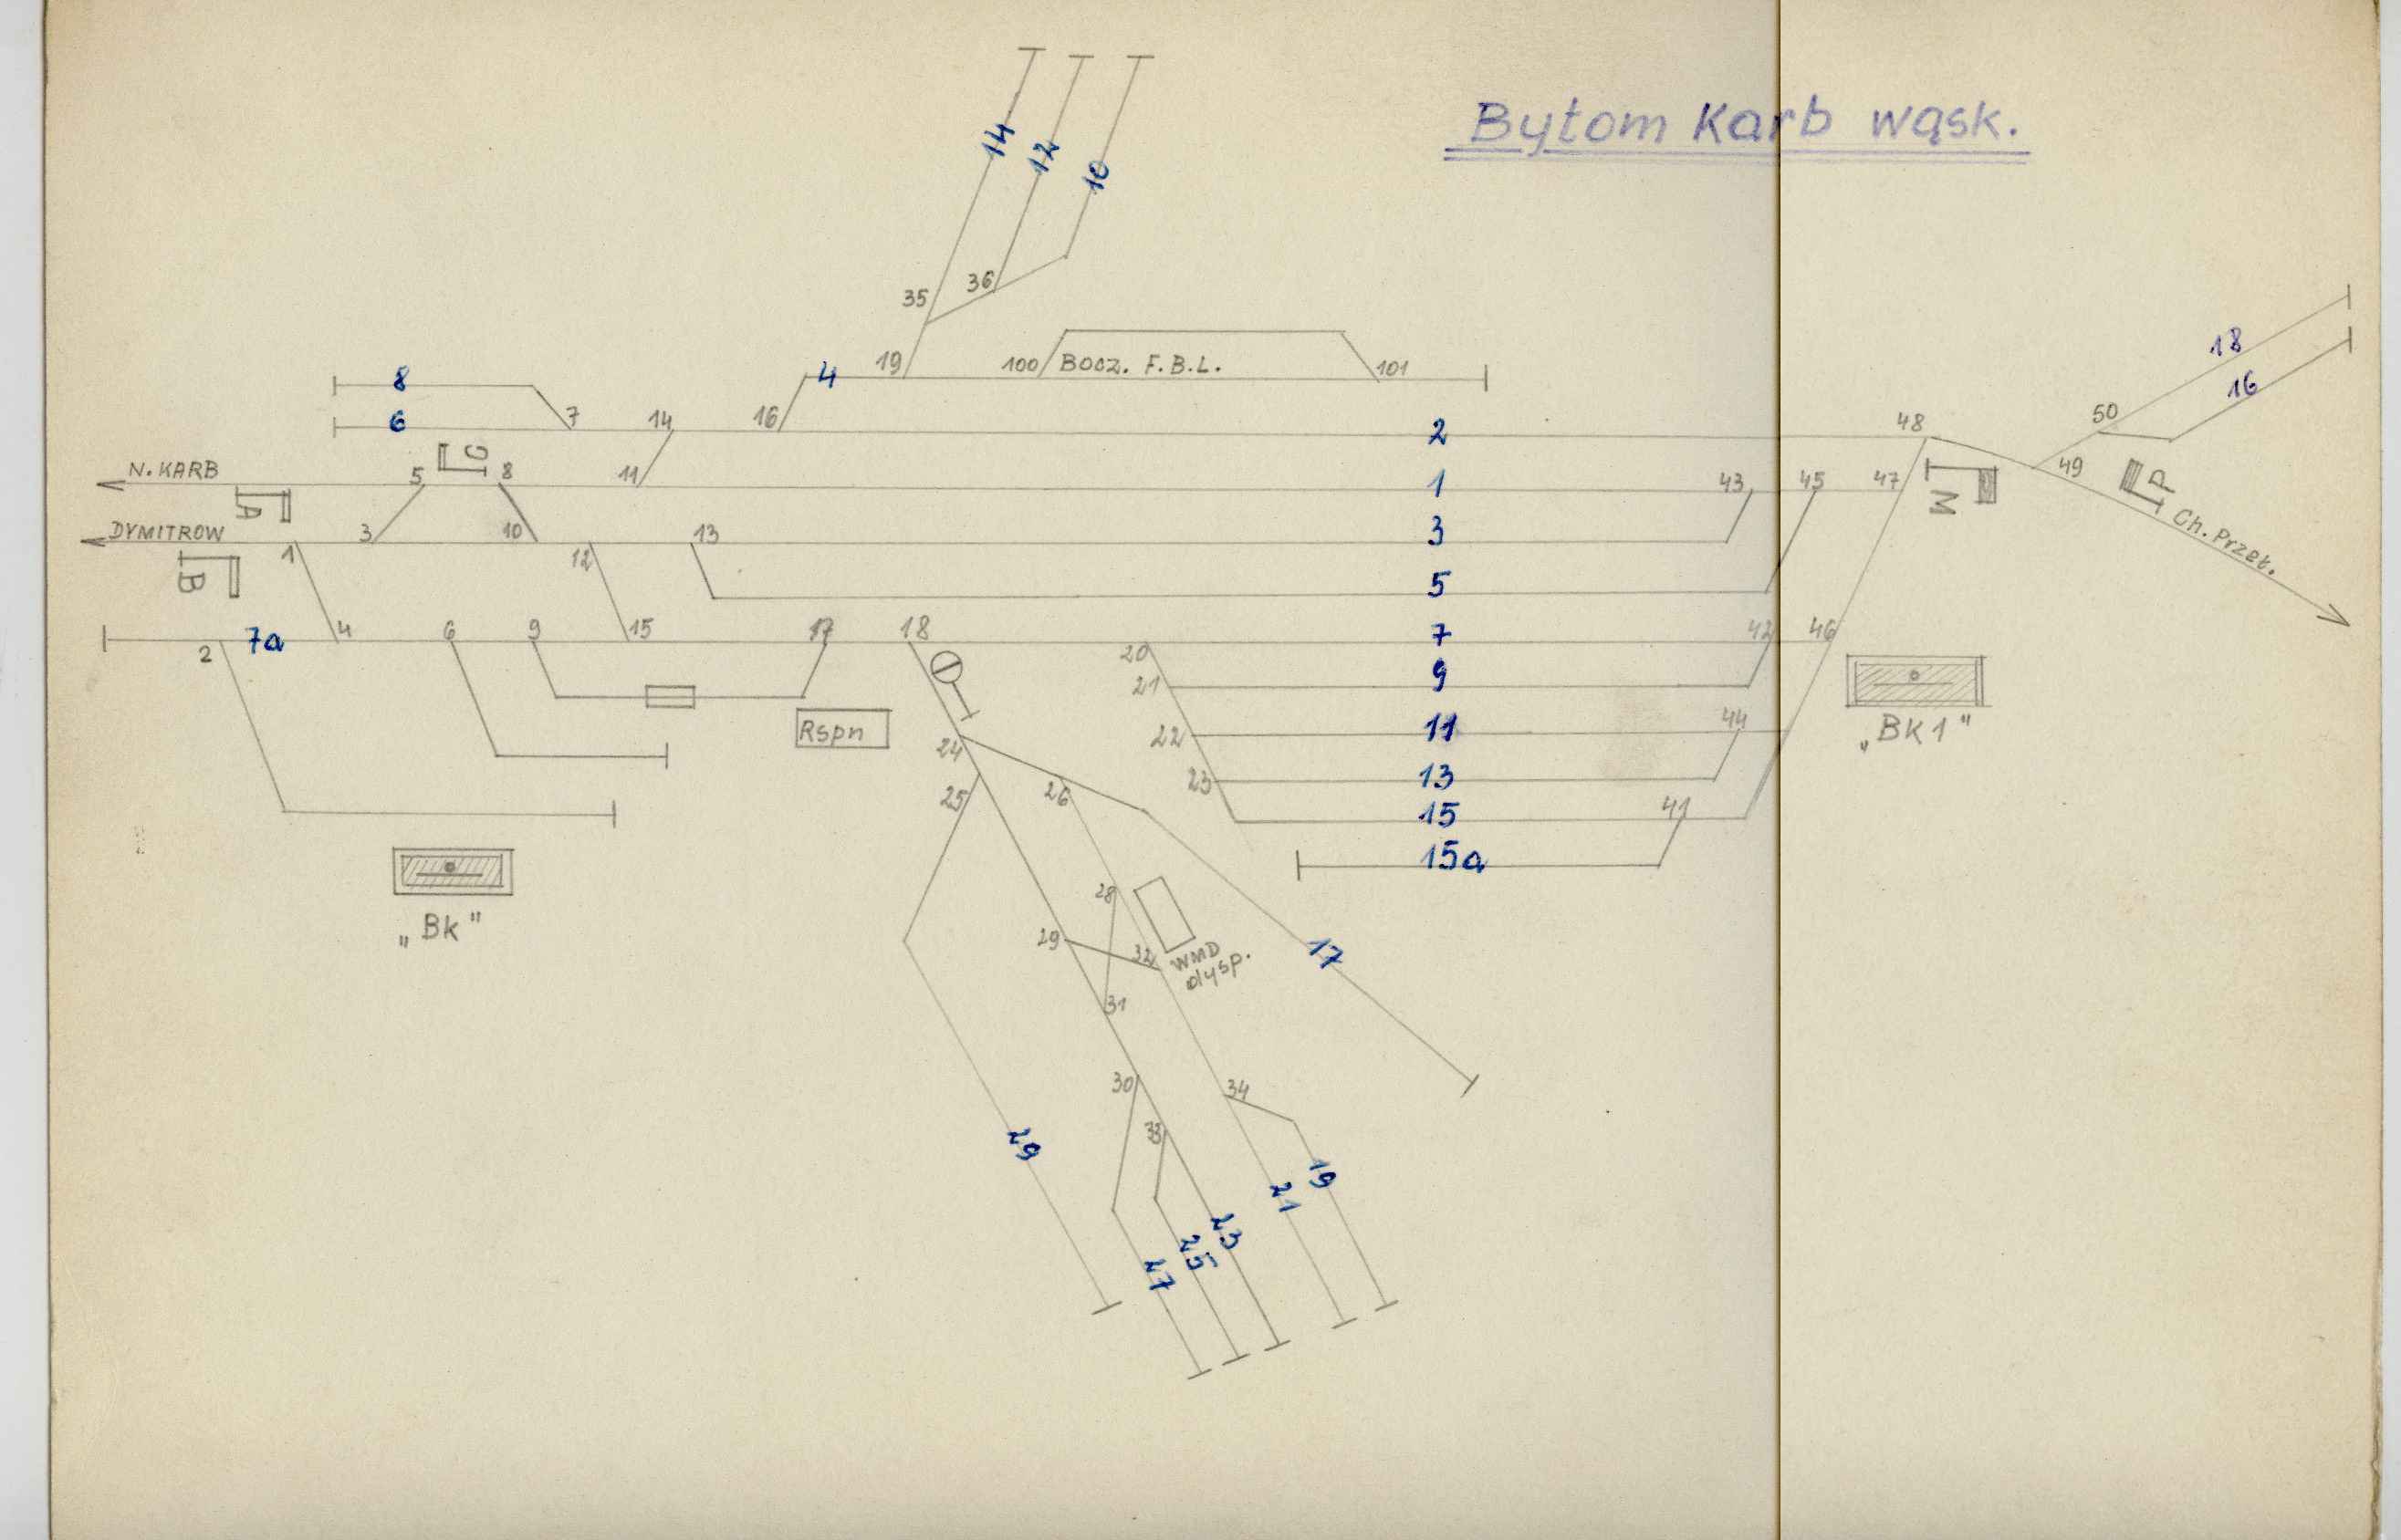 Bytom Karb wąsk.
14
12
10
35
36
19
100
Bocz. F.B.L.
101
4
8
6
7
14
16
2
48
50
18
16
49
P
Ch. Przeł.
N. KARB
A
5
8
11
1
43
45
47
M
DYMITROW
B
1
3
10
12
13
3
5
7a
2
4
6
9
15
17
18
20
7
42
46
21
9
Rspn
24
22
11
44
„BK1"
25
26
23
13
15
41
15a
„Bk"
28
29
32
WMD
dysp.
17
31
30
34
33
29
19
21
23
25
27